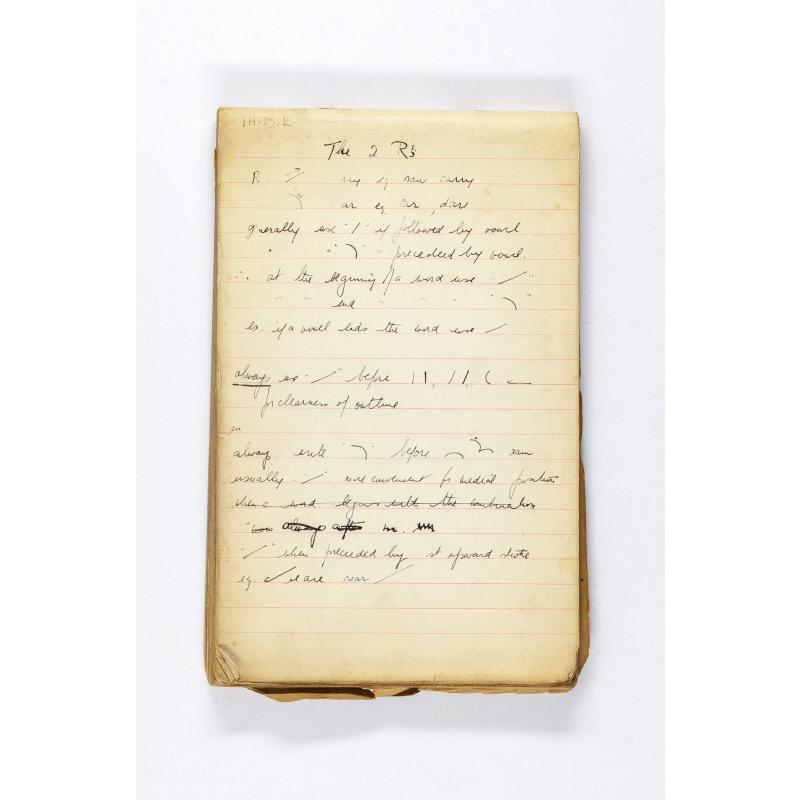 The 2 R's
R ray eg carry
ar eg car, dare
generally use "/" if followed by vowel
" " " " preceded by vowel.
∴ at the beginning of a word use "/"
" " end " " " "
ex. if a vowel ends the word use /
always use "/" before
for clearness of outline
always write before
usually / more convenient for medial position
when a word begins with the combination
always after
"/" when preceded by st upward stroke
eg. rear /